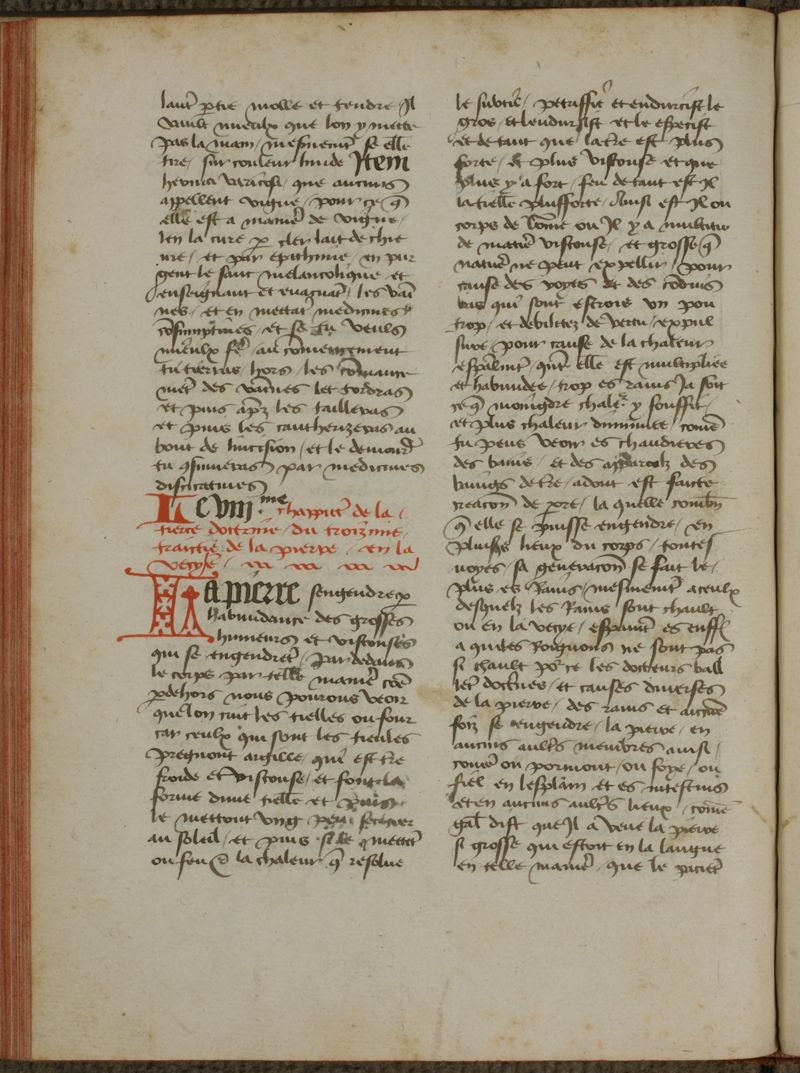 laut̃ ptie molle et tendre Il
vault mieulx que lon y mette
pas la main / mesmemt̃ se elle
tire / sur couleur liuide Item
hernia varicosa / que aucuns
appellent vigne / pour ce q̃
elle est a manier̃ de vigne /
len la cure p cler lait de chie
ure / et par epithime / en pur
gent le sanc melancolique et
enseignant et euacuant / les vai
nes / et en mettãt medicines
cõsumptiues / et se tu veulx
mieulx fẽ au cõmencement
tu tierras hors / les
met̃ des vaines let tordras
et puis apz̃ les tailleras
et puis les cautherizeras au
bout de lincision / et le demour̃
tu 9sumeras par medicines
disiccatiues
Le viii.me chappitr̃ de la /
tierce doctrine / du troizime
traictie de la pierre / en la
vecye
La pierre sengendre p
habundance des grosses
humeurs et viscouses
qui se engendrẽt / par dedans
le corps par telle manier̃ cõe
p dehors nous pourons veoir
que lon cuit les tielles ou four
car ceulx qui font les tieules
pregnont argille / qui est tr̃e
froide et viscouse / et font la
forme dune tielle et puis
le mettont vng peu seicher
au soleil / et puis se le mettẽt
ou feu & la chaleur q̃ resolue
le subtil / petriffit et endurcist le
gros / et lendursist et le especist
et de tant que la tr̃e est plus
forte / & plus viscouse et que
plus y a fort / feu de tant est Il
la tielle plusforte / Ainsi est Il ou
corps de lõme ou Il y a multitu
de matier̃ viscouse / et grosse q̃
natur̃ ne peut expellir / pour
cause des voyes et des cõduis
qui sont estrois vn pou
trop / et debilitez de vertu / expul
siue pour cause de la chaleur
espãlmt̃ / qnt̃ elle est multipliee
et habundee / trop es rains Ja soit
ce q̃ moingdre chalr̃ y souffit /
et plus chaleur diminuee / cõme
tu peus veoir es chaudieres
des bains / et des des
baings de tr̃e / adont est faicte
reacon de / la quelle combñ
q̃ elle se puisse engendre / en
plus's lieux du corps / toutes
uoyes / sa generacon se fait le /
plus es Rains / mesmemt̃ a ceulx
desquelz les Rains sont chault
ou en la vecye / espãmt̃ es enff
a quites Roignons ne sont pas
si chault po' ce les docteurs ball
let̃ doctrines / et causes diuerses
de la pierre / des rains et aucũe
foiz se engendre / la pierre / en
aucuns aultr̃s membres aussi /
cõme ou pormont / ou foye / ou
fiel en lesplãin / et es intestins
et en aucuns aultr̃s lieux / cõme
gal' dist que Il a veue la pierre
si grosse qui estoit en la langue
en telle manier̃ que le pacieñt